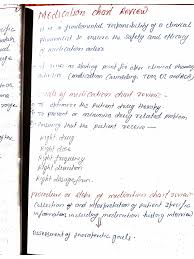 Medication chart Review
It is a fundamental responsibility of a clinical
pharmacist to ensure the safety and efficacy
of medication orders
It serve as starting point for other clinical pharmacy
services (medication counseling, TDM, DI and ADR)
Goals of medication chart review:-
To optimize the patient drug therapy
To prevent or minimize drug related problem
Ensuring that the patient receive -
right drug
right dose
right frequency
right duration
right dosage form.
procedure or steps of medication chart review-
Collection of and interpretation of patient specific
information including medication history interview
Assessment of therapeutic goals.